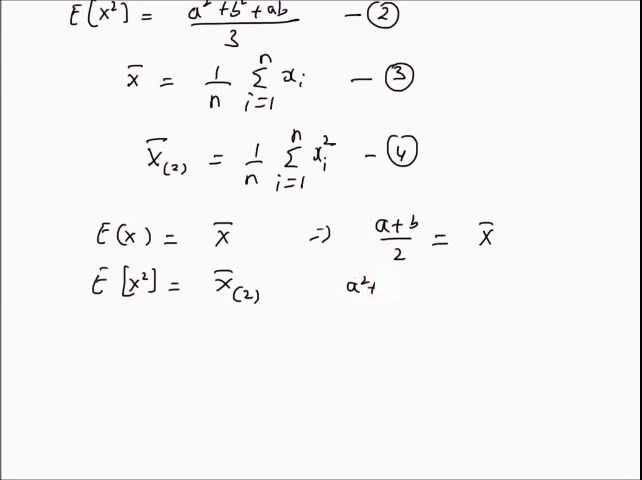 E[x²] = a² + b² + ab / 3 — ②
x̄ = 1/n Σ_{i=1}^{n} xᵢ — ③
X̄₍₂₎ = 1/n Σ_{i=1}^{n} xᵢ² — ④
E(x) = X̄ ⇒ a+b / 2 = X̄
E[x²] = X̄₍₂₎ a²+